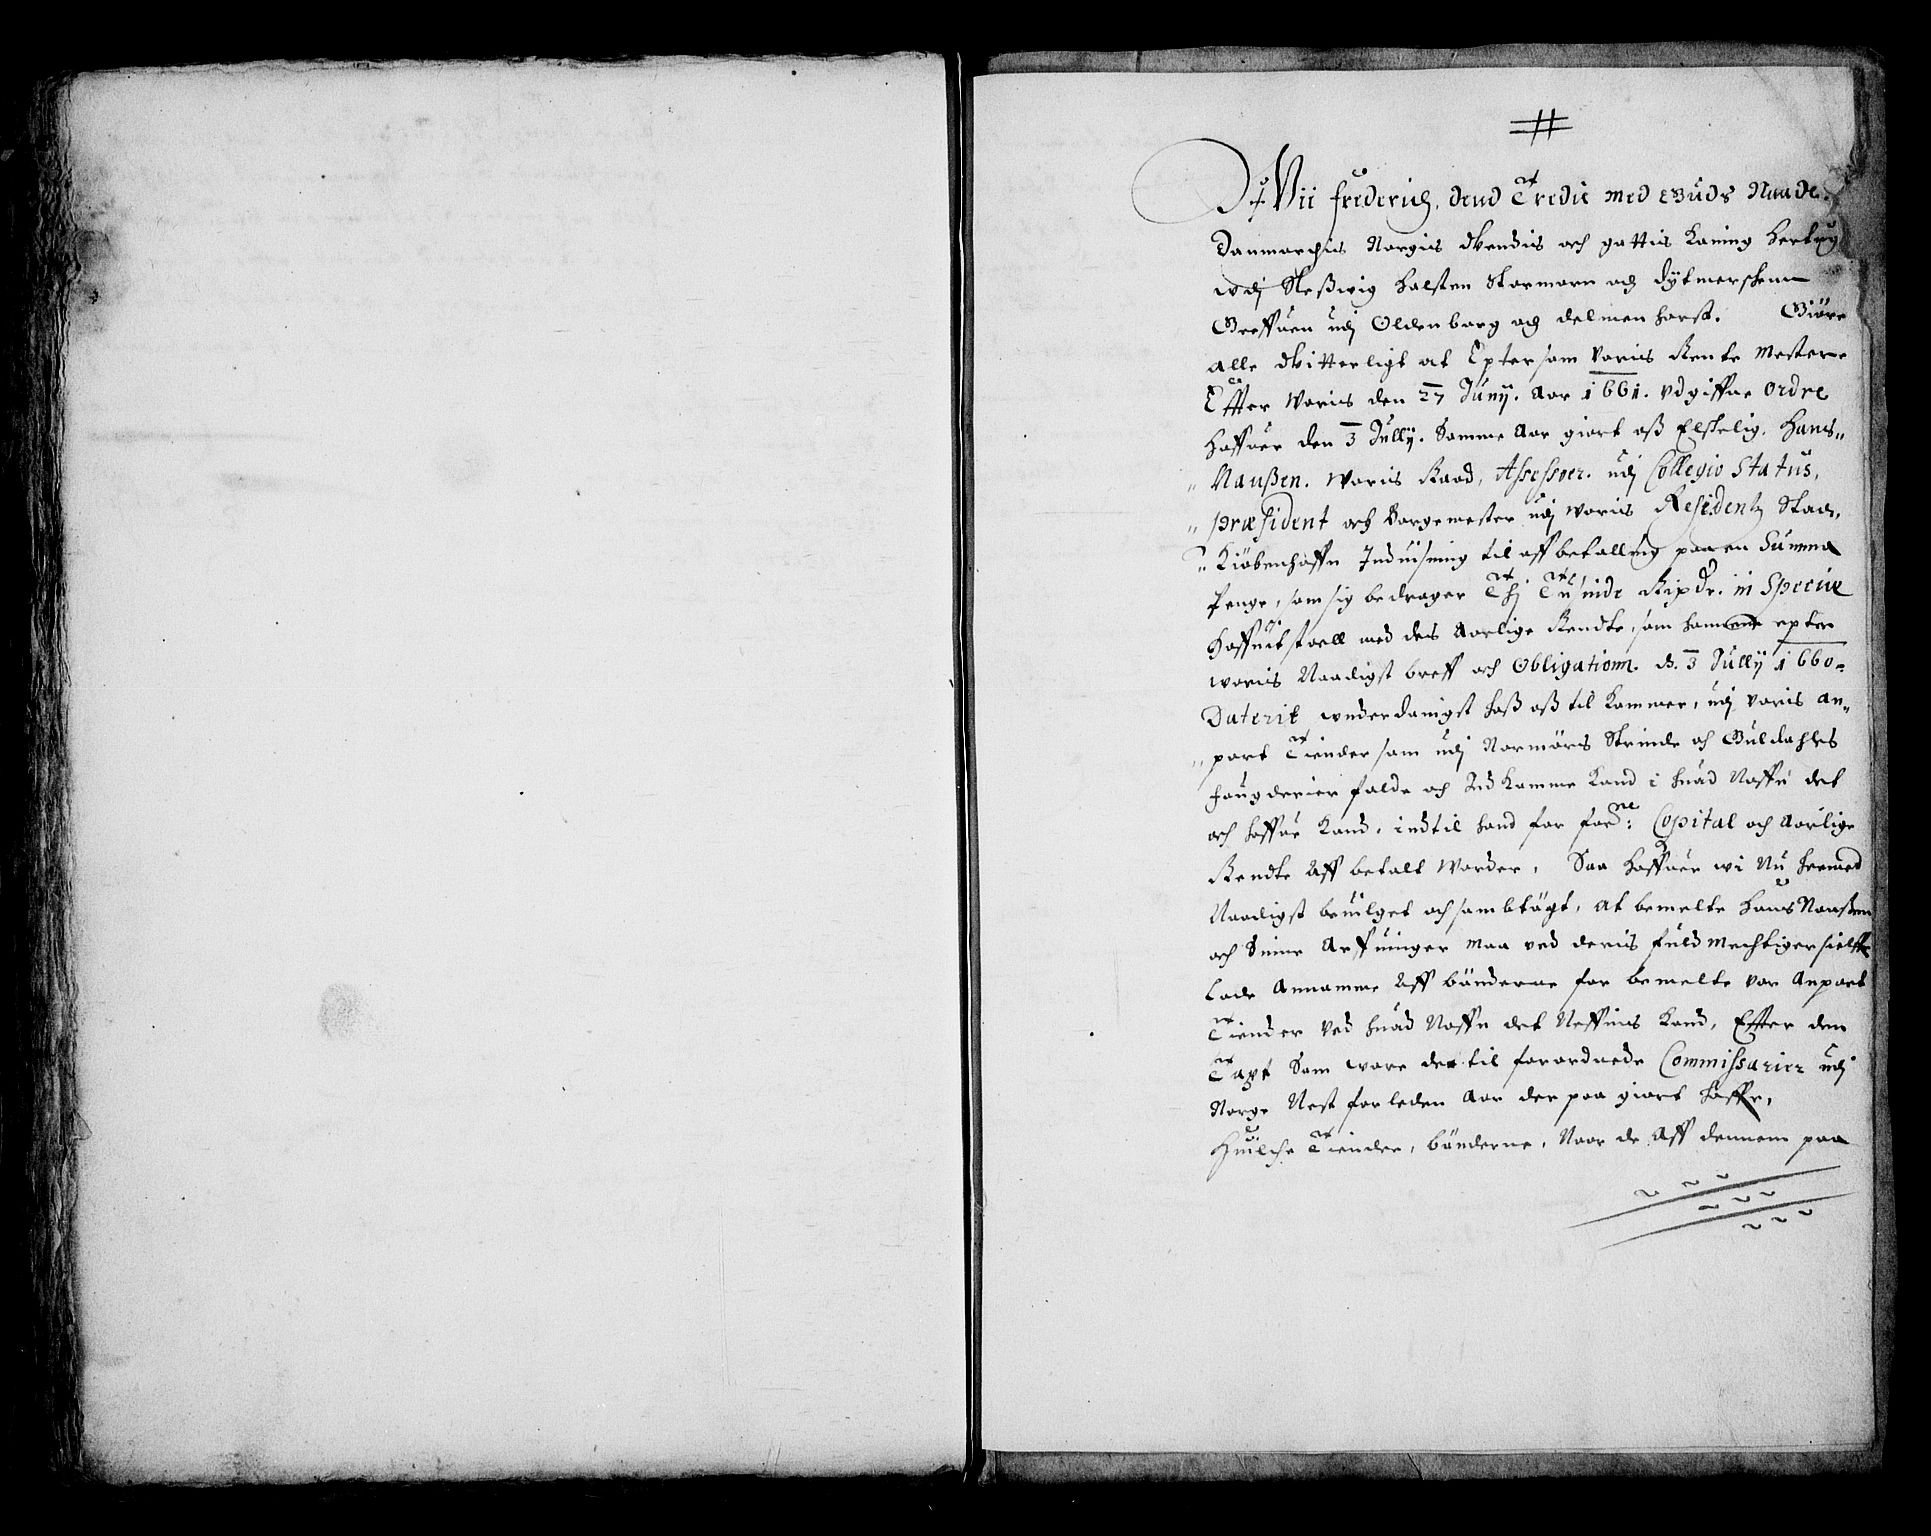 Vii Frederich dend Tredie med Guds Naade
Danmarchis Norgis Wendis och gottis Koning Hertug
udj Sleßwig Holsten Stormarn och Dytmerschenn
Greffuen udj Oldenborg och delmenhorst. Giöre
alle Witterligt at Epter som Voris Rente Mestere
Effter Woris den 27 Junij. Aar 1661. Udgiffne Ordre
Haffuer den 3 Jullij. Samme Aar giort oß Elskelig. Hans
Naußen. Woris Raad, Assessoer. udj Collegio Status,
Præsident och Borgemester udj Woris Residentz Stad,
Kiöbenhaffn Induisning til affbetalling paa en Summa
Penge, som sig bedrager Thj Tusinde Rixdr. in Specie
Haffuitstoell med des Aarlige Rendte, som hannem epter
woris Naadigst breff och Obligation. d. 3 Jullij 1660
Daterit underdanigst hoß oß til Kommer, udj Voris an-
part Tiender som udj Normörs Strinde och Guldahls
fougderier falde och Ind Komme Kand i huad Naffn det
och haffue Kand, indtil hand for forne: Capital och Aarlige
Rendte Aff betalt Worder, Saa Haffuer wi Nu hermed
Naadigst beuilget och sambtögt, at bemelte Hans Naußen
och Sinne Arffuinger maa ved deris fuldmechtiger sielff
Lade Annamme Aff bönderne for bemelte vor Anpart
Tiender Ved huad Naffn det Neffnis Kand, Effter den
Taxt Som wore der til forordnede Commissarier udj
Norge Nest forleden Aar der paa giort haffr,
Huilche Tiender, bönderne, Naar de Aff dennem paa